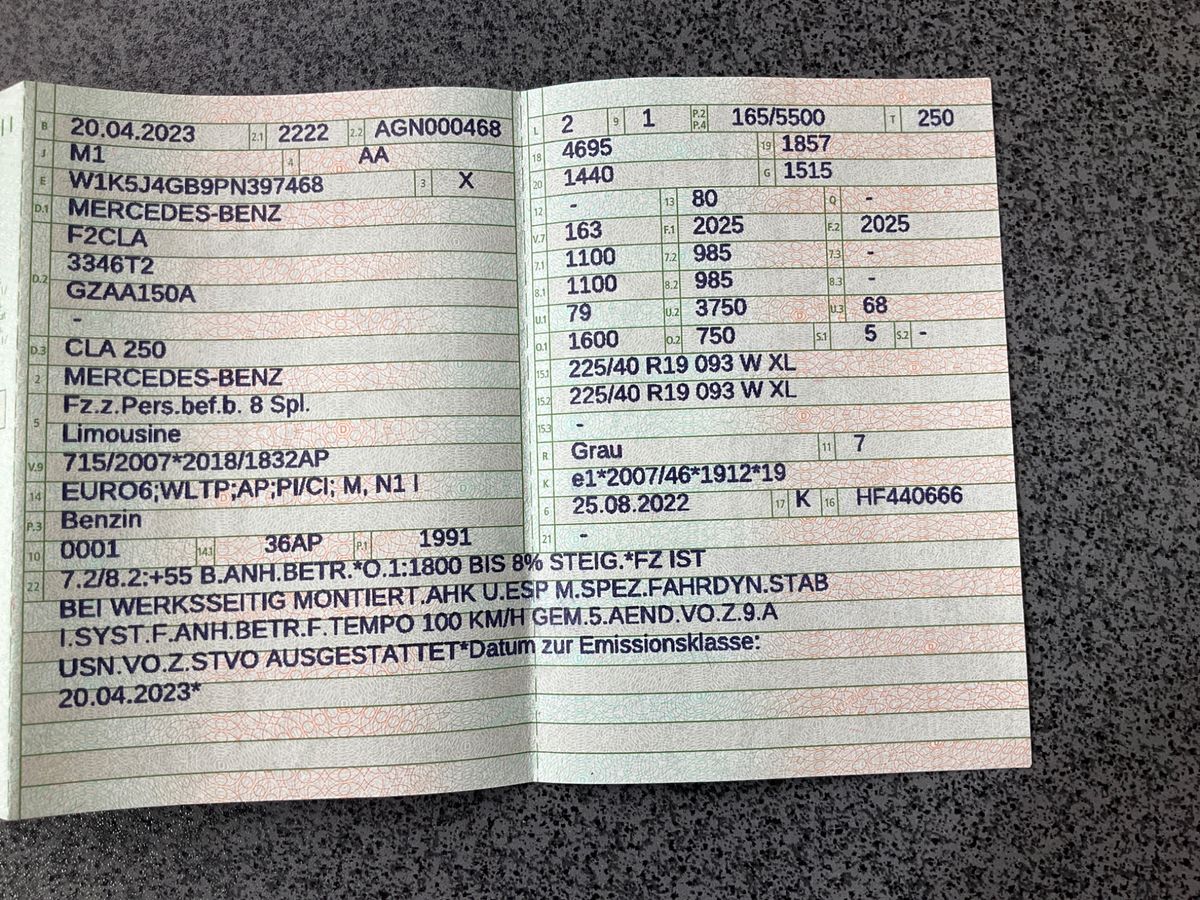 B 20.04.2023 2.1 2222 2.2 AGN000468
J M1 4 AA
E W1K5J4GB9PN397468 3 X
D.1 MERCEDES-BENZ
F2CLA
D.2 3346T2
GZAA150A
-
D.3 CLA 250
2 MERCEDES-BENZ
5 Fz.z.Pers.bef.b. 8 Spl.
Limousine
V.9 715/2007*2018/1832AP
14 EURO6;WLTP;AP;PI/CI; M, N1 I
P.3 Benzin
10 0001 14.1 36AP P.1 1991
L 2 9 1 P.2 P.4 165/5500 T 250
18 4695 19 1857
20 1440 G 1515
12 - 13 80 Q -
V.7 163 F.1 2025 F.2 2025
7.1 1100 7.2 985 7.3 -
8.1 1100 8.2 985 8.3 -
U.1 79 U.2 3750 U.3 68
O.1 1600 O.2 750 S.1 5 S.2 -
15.1 225/40 R19 093 W XL
15.2 225/40 R19 093 W XL
15.3 -
R Grau 11 7
K e1*2007/46*1912*19
6 25.08.2022 17 K 16 HF440666
21 -
22 7.2/8.2:+55 B.ANH.BETR.*O.1:1800 BIS 8% STEIG.*FZ IST
BEI WERKSSEITIG MONTIERT.AHK U.ESP M.SPEZ.FAHRDYN.STAB
I.SYST.F.ANH.BETR.F.TEMPO 100 KM/H GEM.5.AEND.VO.Z.9.A
USN.VO.Z.STVO AUSGESTATTET*Datum zur Emissionsklasse:
20.04.2023*